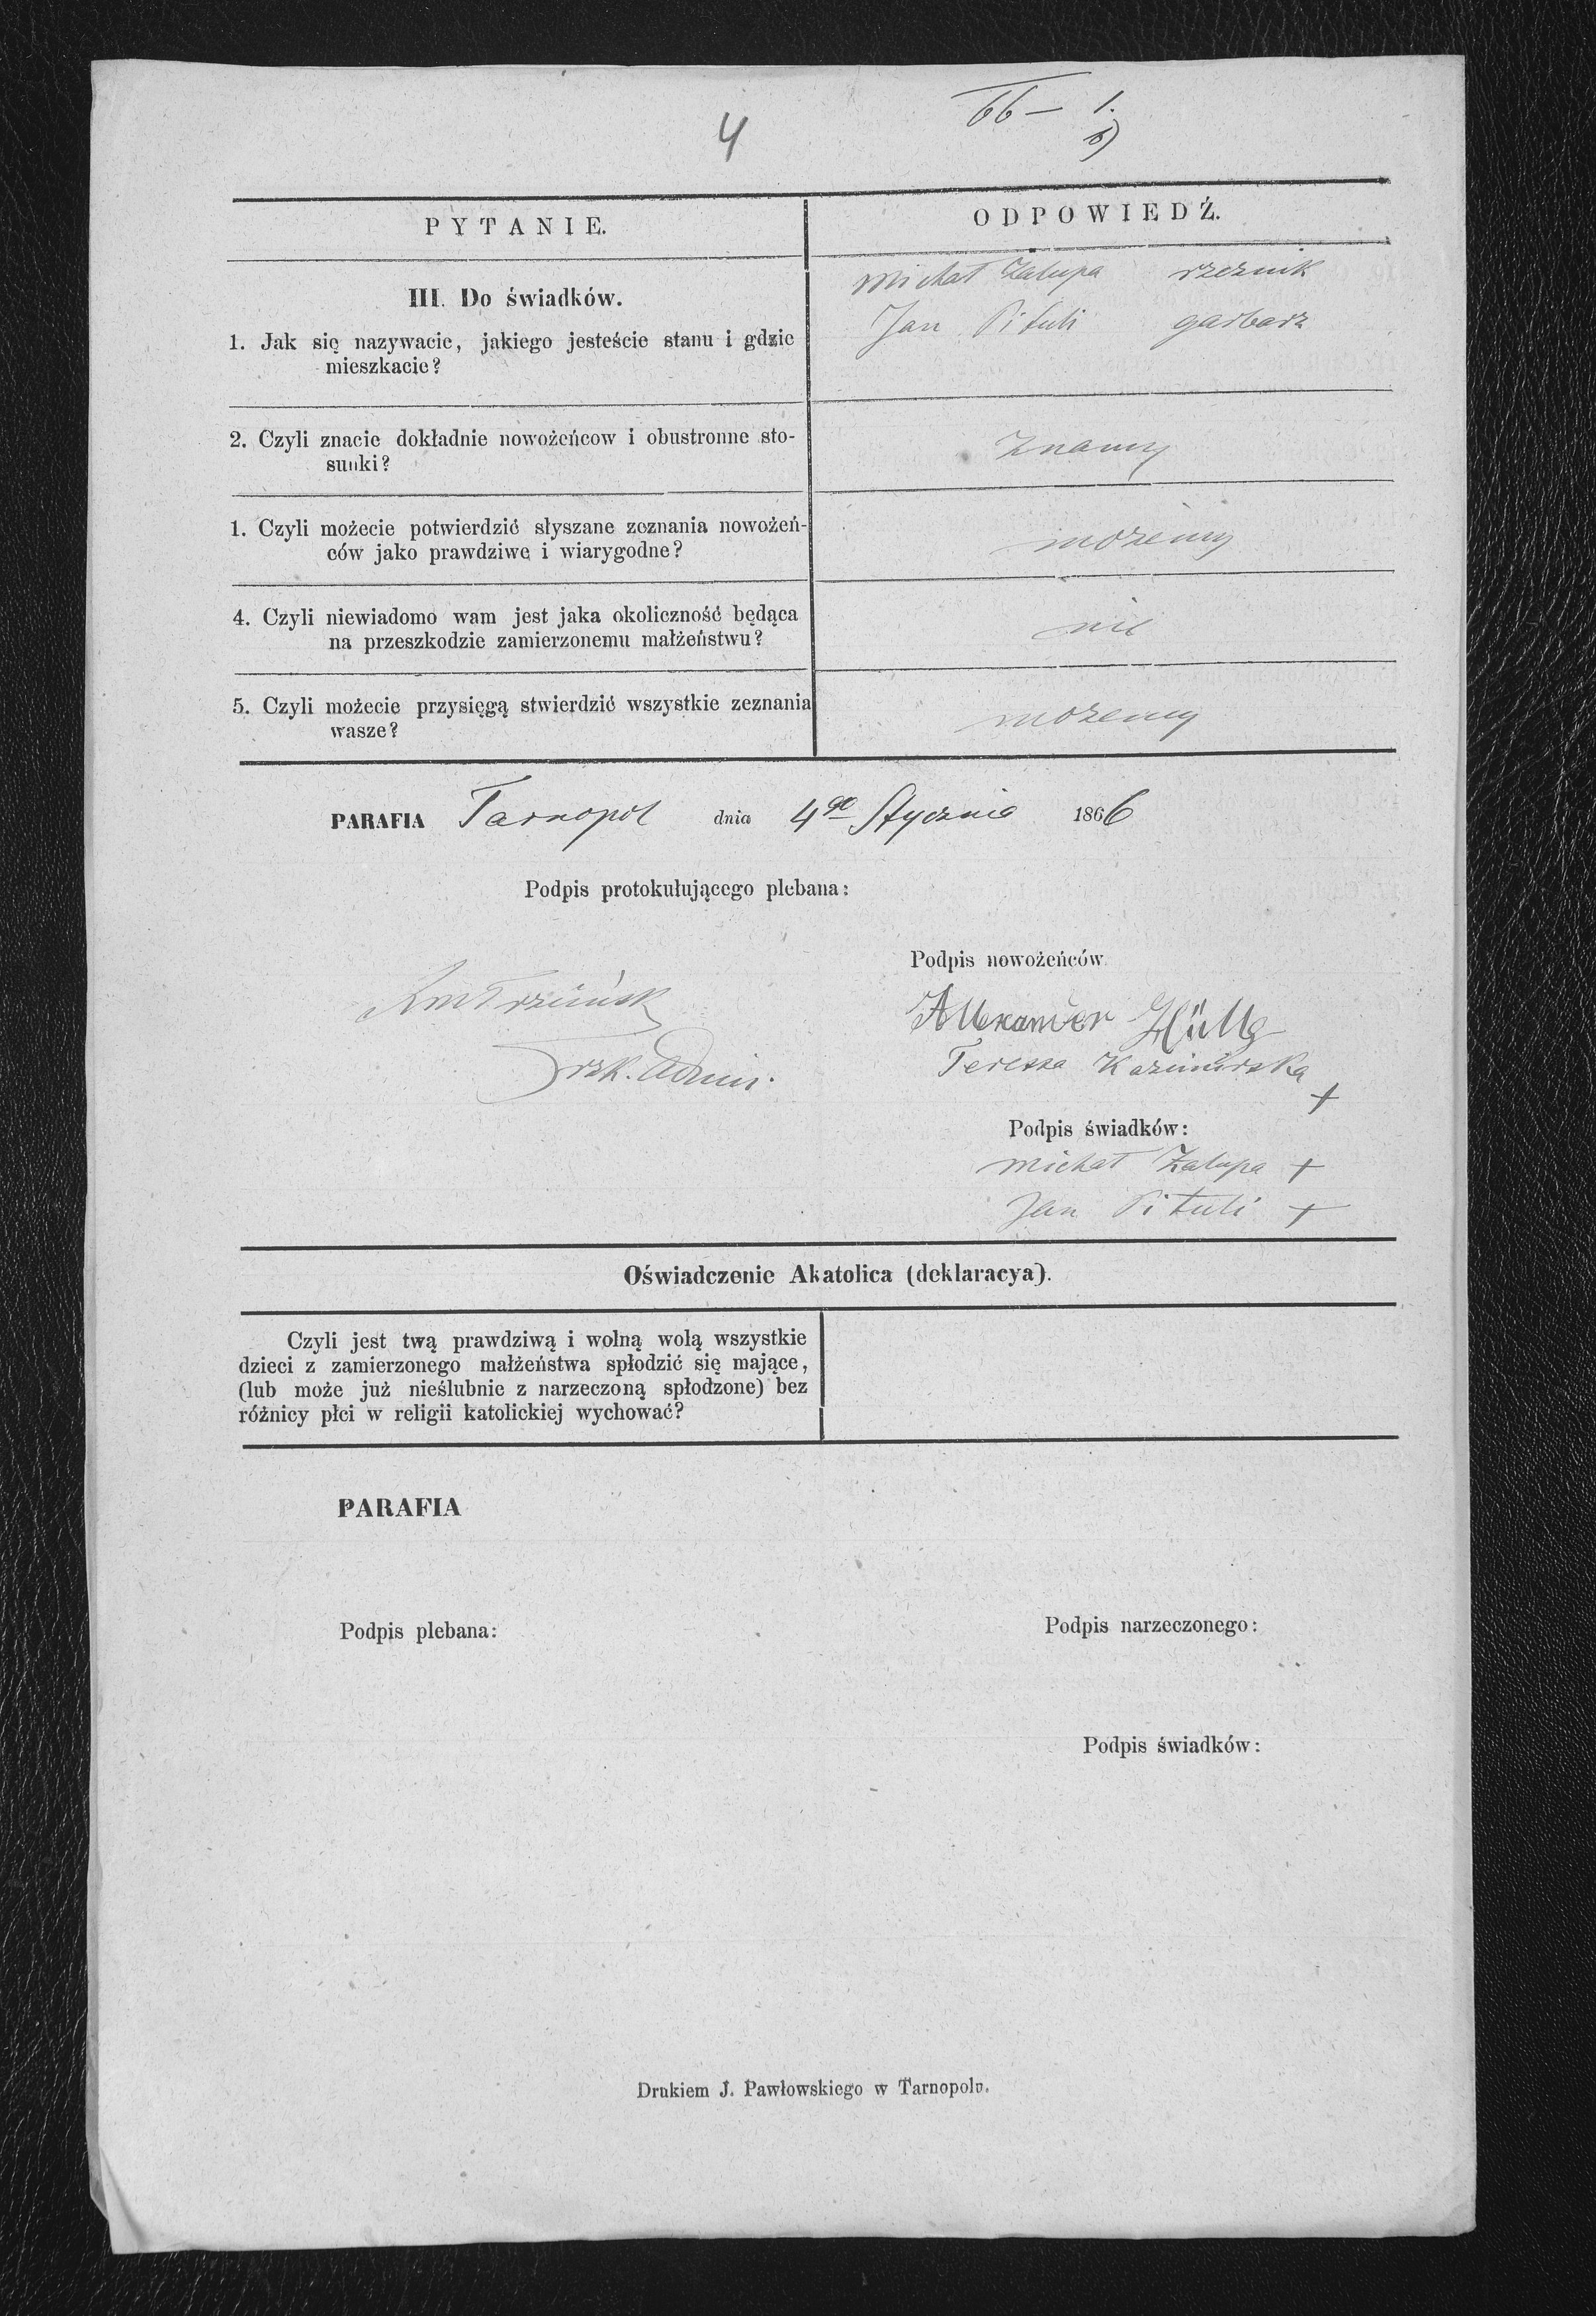 4
66 — 1.
PYTANIE.
ODPOWIEDŹ.
III. Do świadków.
1. Jak się nazywacie, jakiego jesteście stanu i gdzie
mieszkacie?
Michał Załupa rzeznik
Jan Pituli garbarz
2. Czyli znacie dokładnie nowożeńcow i obustronne sto-
sunki?
znamy
1. Czyli możecie potwierdzić słyszane zeznania nowożeń-
ców jako prawdziwe i wiarygodne?
możemy
4. Czyli niewiadomo wam jest jaka okoliczność będąca
na przeszkodzie zamierzonemu małżeństwu?
nie
5. Czyli możecie przysięgą stwierdzić wszystkie zeznania
wasze?
możemy
PARAFIA Tarnopol dnia 4go Stycznia 1866
Podpis protokułującego plebana:
Podpis nowożeńców
Admin.
Teressa Kazimirska
+
Podpis świadków:
Michał Załupa +
Jan Pituli +
Oświadczenie Akatolica (deklaracya).
Czyli jest twą prawdziwą i wolną wolą wszystkie
dzieci z zamierzonego małżeństwa spłodzić się mające,
(lub może już nieślubnie z narzeczoną spłodzone) bez
różnicy płci w religii katolickiej wychować?
PARAFIA
Podpis plebana:
Podpis narzeczonego:
Podpis świadków:
Drukiem J. Pawłowskiego w Tarnopolu.